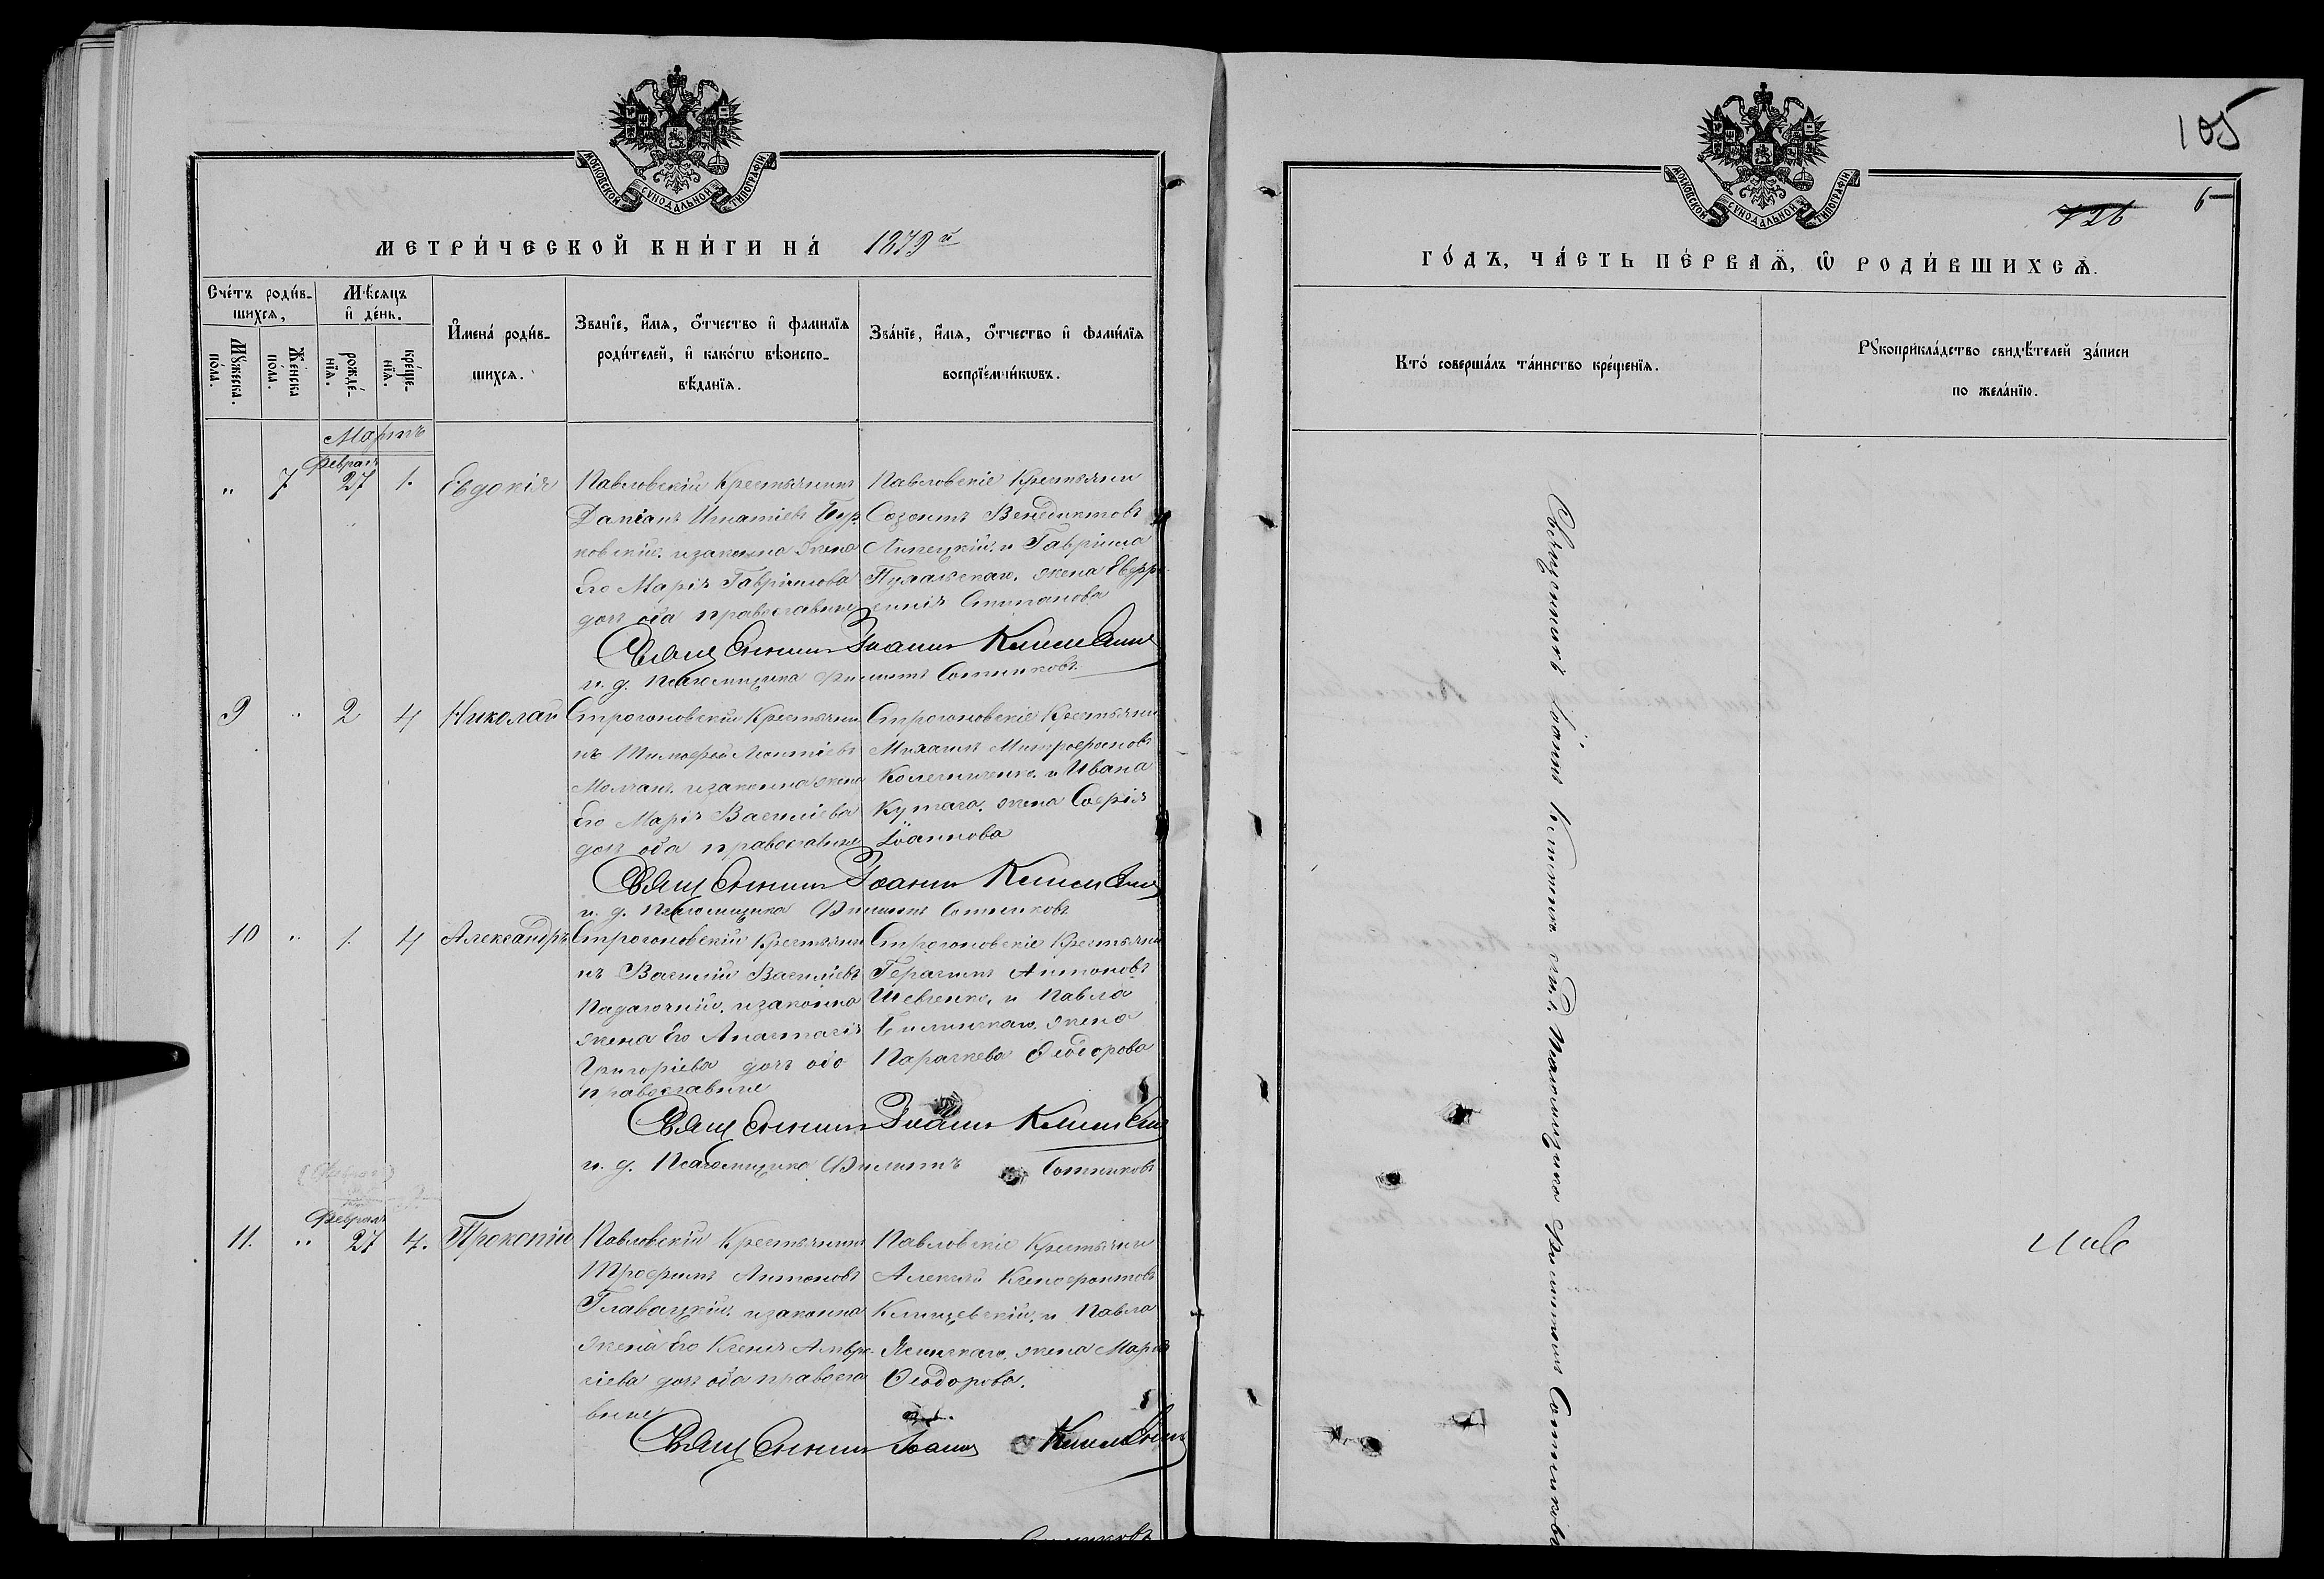 МОСКОВСКОЙ СѴНОДАЛЬНОЙ ТИПОГРАФІИ
МЕТРИ́ЧЕСКОЙ КНИ́ГИ НА́ 1879й
Сче́тъ роди́в-
шихсѧ,
Мꙋжеска по́ла.
Же́нска по́ла.
Мѣ́сѧцъ
и҆ де́нь.
рожде́-
нїѧ.
креще́-
нїѧ.
И҆мена̀ роди́в-
шихсѧ.
Зва́нїе, и҆́мѧ, ѻ҆́тчество и҆ фамѝлїѧ
роди́телей, и҆ како́гѡ вѣроиспо-
вѣ́данїѧ.
Зва́нїе, и҆́мѧ, ѻ҆́тчество и҆ фамѝлїѧ
воспрїе́мникѡвъ.
Мартъ
Февраль
" 7 27 1. Евдокія
Павловскій Крестьянинъ
Даміанъ Игнатіевъ
ковскій. и законна жена
Его Марія Гавріилова
дочь оба православные
Павловскіе Крестьяни
Созонтъ Венедиктовъ
Липецкій. и Гавріила
жена Евфро
синія Стипанова
Священникъ Іоаннъ
и. д. Псаломщика Филиппъ Сотниковъ
9 " 2 4 Николай
Строгоновскій Крестьяни
нъ Тимофей Леонтіевъ
Молчанъ. и законна жена
Его Марія Василіева
доч оба православные
Строгоновскіе Крестьяни
Михаилъ Митрофановъ
Колесниченко. и Ивана
Кутаго. жена Софія
Іоаннова
Священникъ Іоаннъ
и. д. Псаломщика Филиппъ Сотниковъ
10 " 1. 4 Александръ
Строгоновскій Крестьяни
нъ Василій Василіевъ
и законна
жена Его Анастасія
Григоріева доч оба
православные
Строгоновскіе Крестьяни
Герасимъ Антоновъ
Шевченко, и Павла
жена
Параскева Ѳеодорова
Священникъ Іоаннъ
и. д. Псаломщика Филиппъ Сотниковъ
Февраль
11. " 27 4. Прокопій
Павловскій Крестьянинъ
Трофимъ Антоновъ
Главацкій. и законна
жена Его Ксенія Амвро-
сіева доч оба правосла
вные
Павловскіе Крестьяни
Алексѣй Ксенофонтовъ
Клищевскій, и Павла
Ясинскаго. жена Марія
Ѳеодорова.
Священникъ Іоаннъ
105
МОСКОВСКОЙ СѴНОДАЛЬНОЙ ТИПОГРАФІИ
726 6
ГО́ДЪ, ЧА́СТЬ ПЕ́РВАѦ, Ѡ҆ РОДИ́ВШИХСѦ.
Кто̀ соверша́лъ та́инство креще́нїѧ.
Рꙋкоприкла́дство свидѣ́телей за́писи
по жела́нїю.
Священникъ Іоаннъ и. д. Псаломщика Филиппъ Сотниковъ